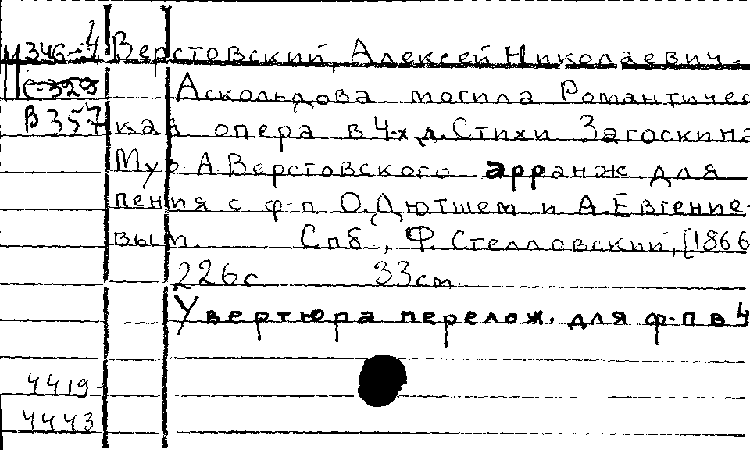 М346-4 Верстовский, Алексей Николаевич.
С-328 Аскольдова могила Романтичес
В357 кая опера в 4-х д. Стихи Загоскина
Муз А. Верстовского арранж для
пения с ф-п О. Дютшем и А. Евгение-
вым. Спб, Ф. Стелловский, [1866
226с 33cm
Увертюра перелож. для ф-п в 4
4419
4443